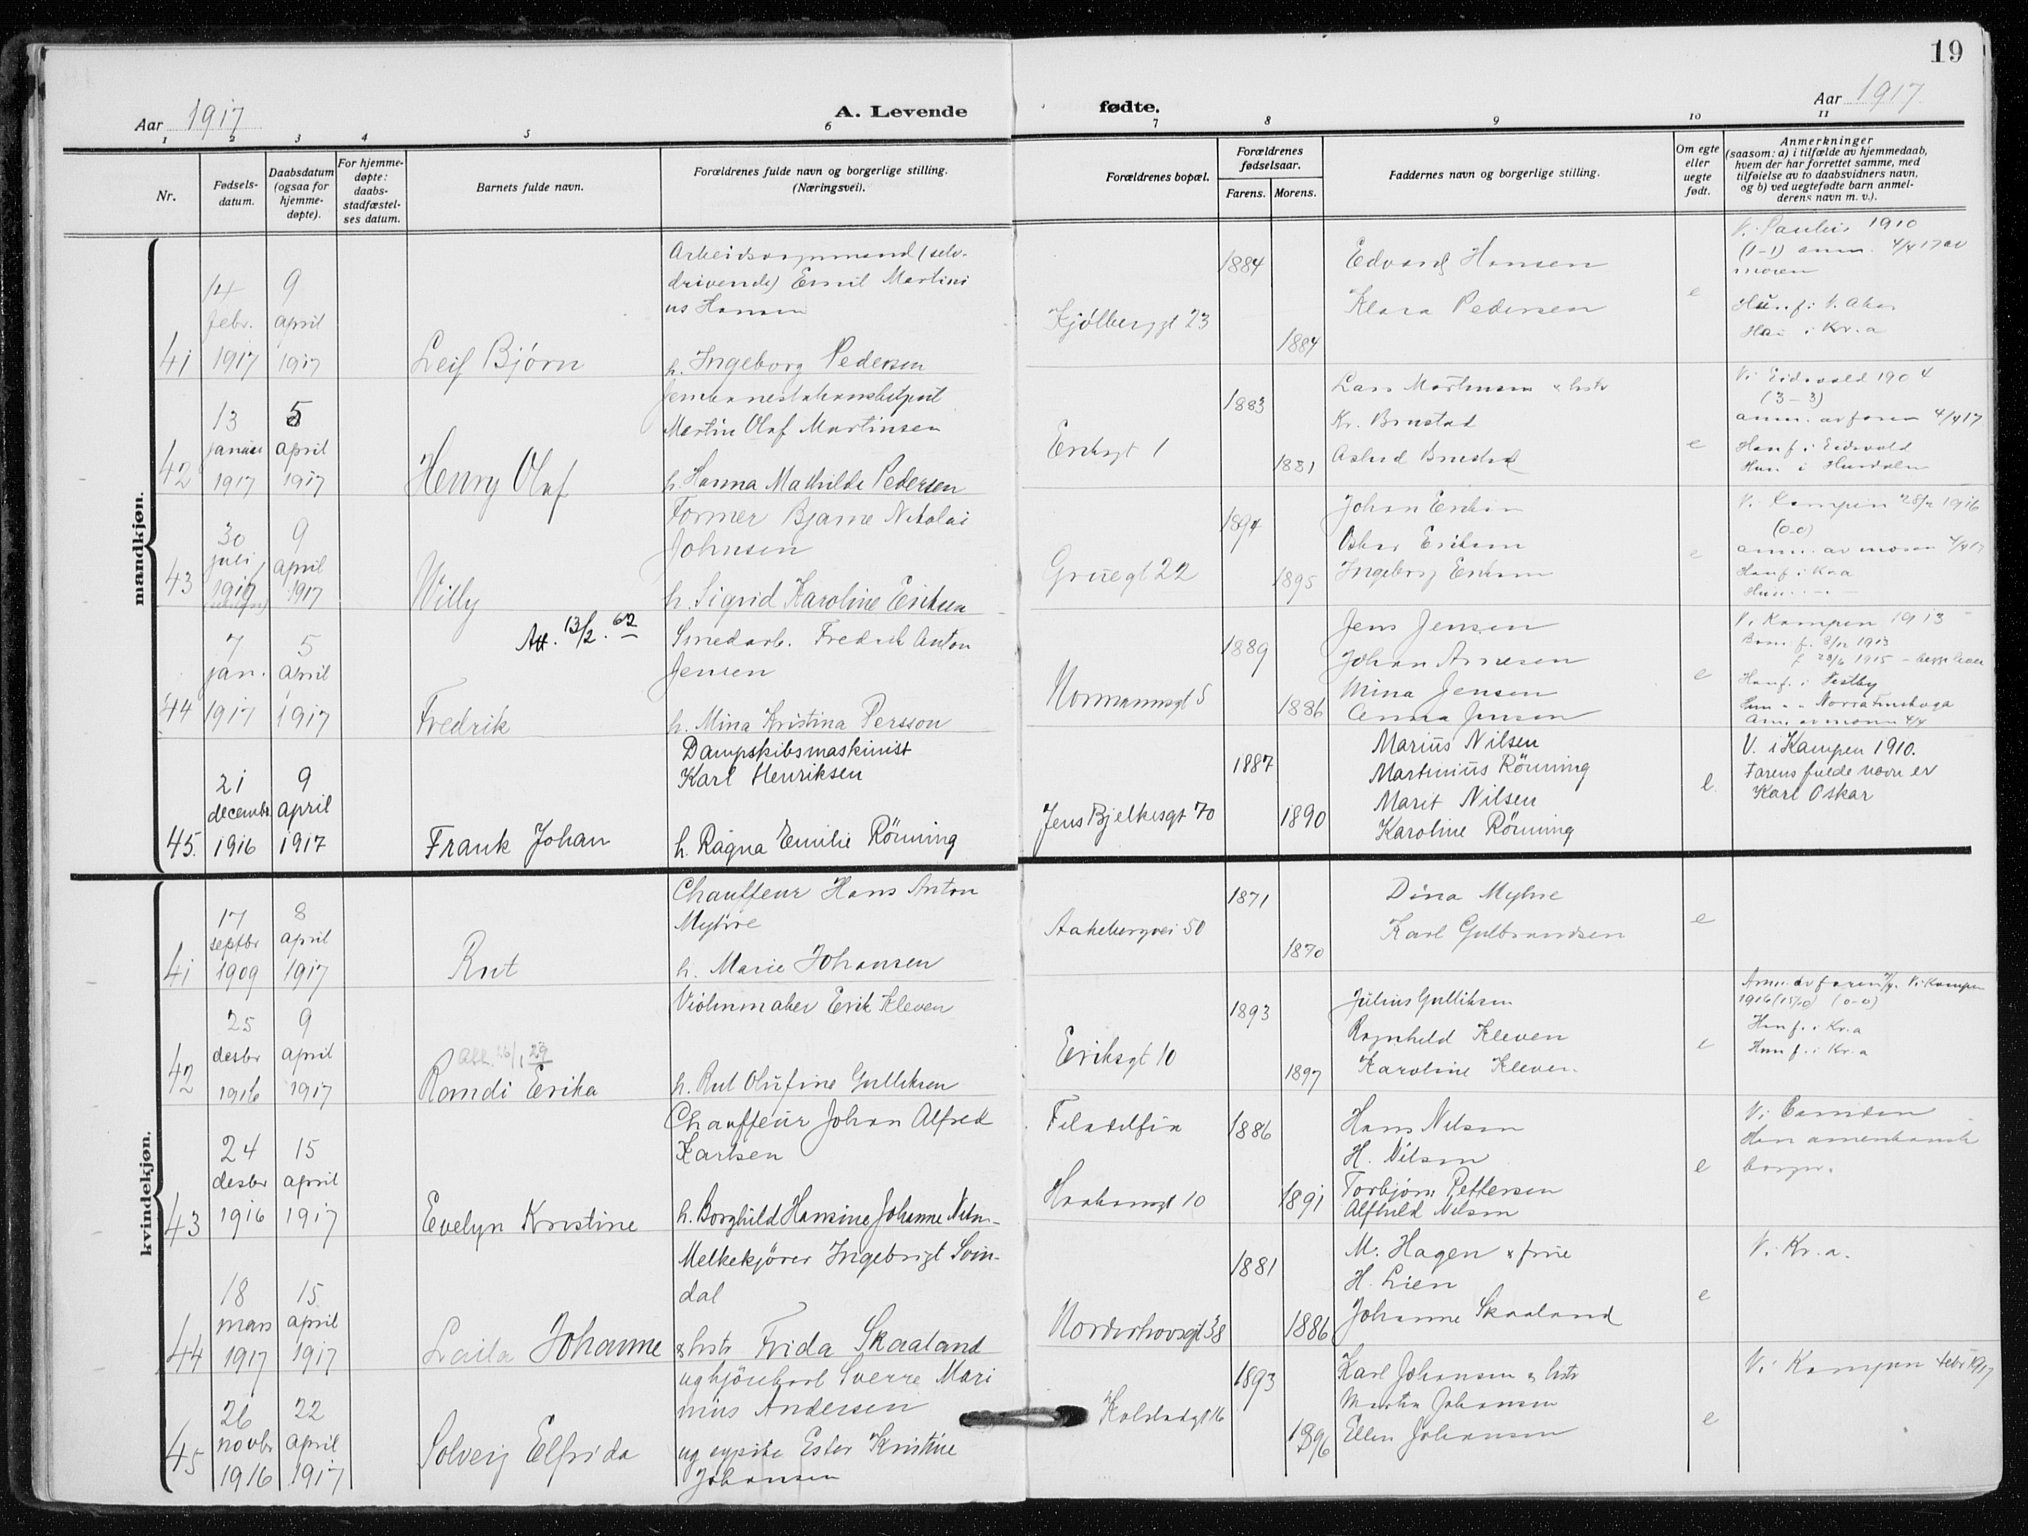 19
Aar 1917
A. Levende
fødte.
Aar 1917.
1 2 3 4 5 6 7 8 9 10 11
Nr.
Fødsels-
datum.
Daabsdatum
(ogsaa for
hjemme-
døpte).
For hjemme-
døpte:
daabs-
stadfæstel-
ses datum.
Barnets fulde navn.
Forældrenes fulde navn og borgerlige stilling.
(Næringsvei).
Forældrenes bopæl.
Forældrenes
fødselsaar.
Farens. Morens.
Faddernes navn og borgerlige stilling.
Om egte
eller
uegte
født.
Anmerkninger
(saasom: a) i tilfælde av hjemmedaab,
hvem der har forrettet samme, med
tilføielse av to daabsvidners navn,
og b) ved uegtefødte barn anmel-
derens navn m. v.).
mandkjøn.
41
14
febr.
1917
9
april
1917
Leif Bjørn
drivende) Emil Martini
us Hansen
h. Ingeborg Pedersen
Kjølberggt 23
1884
1884
Edvard Hansen
Klara Pedersen
e
V. Paulus 1910
(1-1) anm. 4/4 17 av
moren
Hun f. i V. Aker
Han i Kr.a
42
13
januar
1917
5
april
1917
Henry Olaf
Martin Olaf Martinsen
h. Hanna Mathilde Pedersen
Eriksgt 1
1883
1881
Lars Martinsen & hstr
Kr. Brustad
Astrid Brustad
e
Vi Eidsvold 1904
(3-3)
anm. av faren 4/4 17
Han f. i Eidsvold
Hun i Hurdalen
43
30
juli
1917
9
april
1917
Willy
Former Bjarne Nikolai
Johnsen
h. Sigrid Karoline Eriksen
Gruegt 22
1894
1895
Johan Eriksen
Oskar Eriksen
Ingeborg Eriksen
e
V. Kampen 28/12 1916
(0-0)
anm. av moren 4/4 17
Han f. i Kra
Hun
44
7
jan.
1917
5
april
1917
Att. 13/2. 62
Fredrik
Smedarb. Fredrik Anton
Jensen
h. Mina Kristina Persson
Normannsgt 5
1889
1886
Jens Jensen
Johan Arnesen
Mina Jensen
Anna Jensen
e
V. Kampen 1913
Han f. i Vestby
Anm. av moren 4/4
45.
21
decembr
1916
9
april
1917
Frank Johan
Dampskibsmaskinist
Karl Henriksen
h. Ragna Emilie Rønning
Jens Bjelkesgt 70
1887
1890
Marius Nilsen
Martinius Rønning
Marit Nilsen
Karoline Rønning
e.
V. i Kampen 1910.
Farens fulde navn er
Karl Oskar
kvindekjøn.
41
17
septbr
1909
8
april
1917
Rut
Chauffeur Hans Anton
Myhre
h. Marie Johansen
Aakebergvei 50
1871
1870
Dina Myhre
Karl Gulbrandsen
e
42
25
desbr
1916
9
april
1917
Att. 26/1 29
Romdi Erika
Violinmaker Erik Kleven
h. Rut Olufine Gulliksen
Eriksgt 10
1893
1897
Julius Gulliksen
Ragnhild Kleven
Karoline Kleven.
e
Anm. av faren 7/4. Vi Kampen
1916 (15/10) (0-0)
Han f. i Kr.a
Hun f. i Kr.a
43
24
desbr
1916
15
april
1917
Evelyn Kristine
Chauffeur Johan Alfred
Karlsen
h. Borghild Hansine Johanne Nilsen
Filadelfia
Haakonsgt 10
1886
1891
Hans Nilsen
H. Nilsen
Torbjørn Pettersen
Alfhild Nilsen
e
Vi Camden
Han amerikansk
borger.
44
18
mars
1917
15
april
1917
Laila Johanne
Melkekjører Ingebrigt Svin-
dal
& hstr Frida Skaaland
Norderhovsgt 38
1881
1886
M. Hagen & frue
H. Lien
Johanne Skaaland
e
V. Kr.a.
45
26
novbr
1916
22
april
1917
Solveig Elfrida
ugkjørekarl Sverre Mari
nius Andersen
ug sypike Ester Kristine
Johansen
Kolstadgt 16
1893
1896
Karl Johansen & hstr
Martin Johansen
Ellen Johansen
e
Vi Kampen febr 1917